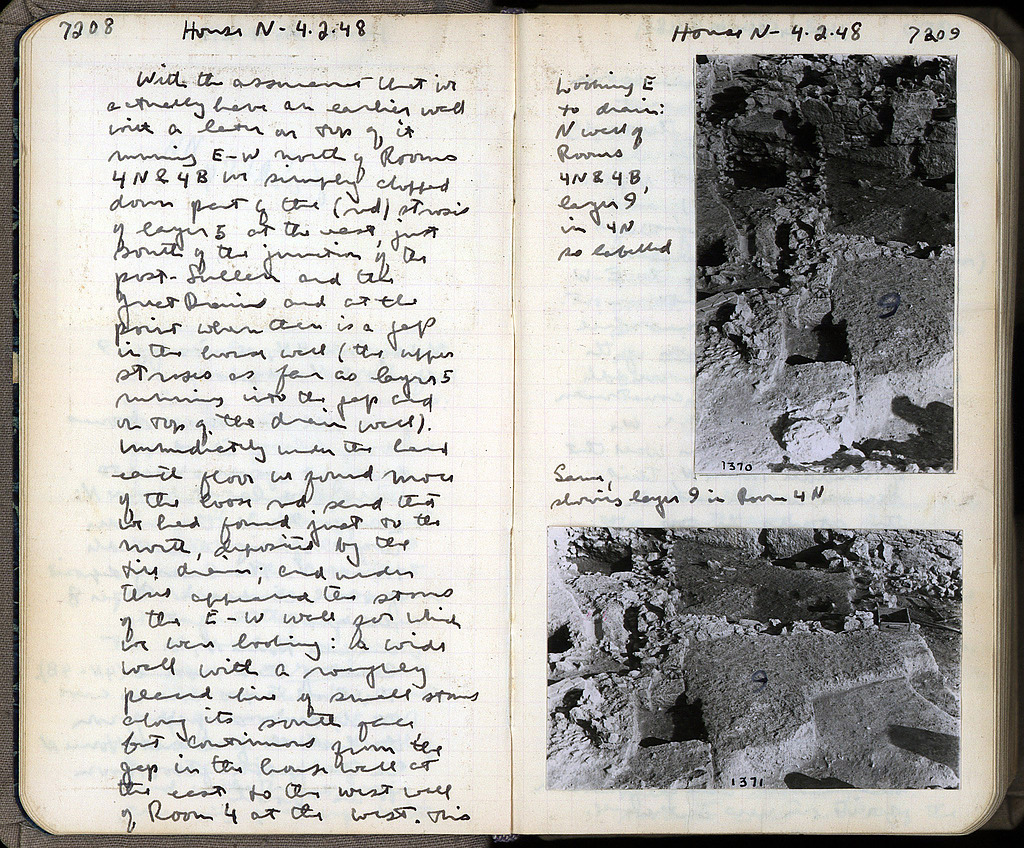 7208 House N - 4.2.48
With the assurance that we
actually have an earlier wall
with a later on top of it
running E-W north of Rooms
4N & 4B we simply chopped
down part of the (rd) strosis
of layer 5 at the west, just
south of the junction of the
post-Sullan and the
Great Drains and at the
point where there is a gap
in the house wall (the upper
stroses as far as layer 5
running into the gap and
on top of the drain wall).
Immediately under the hard
earth floor we found more
of the loose rd. sand that
we had found just to the
north, deposited by the
drain; and under
this appeared the stones
of the E-W wall for which
we were looking: a wide
wall with a roughly
placed line of small stones
along its south face
but continuous from the
gap in the house wall at
the east to the west wall
of Room 4 at the west. This
House N - 4.2.48 7209
Looking E
to drain:
N wall of
Rooms
4N & 4B,
layer 9
in 4N
so labelled
9
1370
Same,
showing layer 9 in Room 4N
9
1371